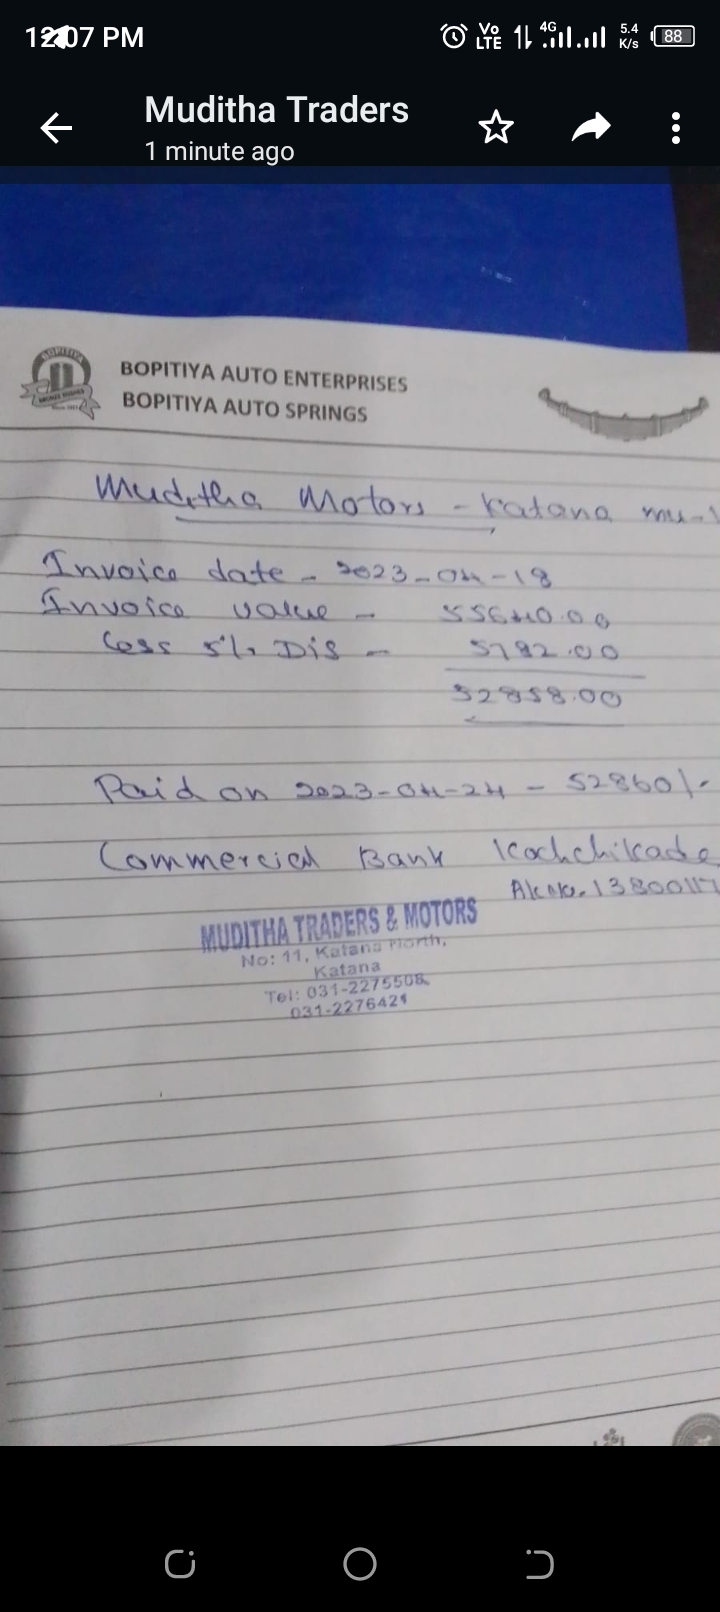 12:07 PM Vo LTE 4G 5.4 K/s 88
Muditha Traders
1 minute ago
BOPITIYA AUTO ENTERPRISES
BOPITIYA AUTO SPRINGS
Muditha Motors - Katana
Invoice date - 2023-04-18
Invoice value - 55640.00
Less 5% Dis - 2782.00
52858.00
Paid on 2023-04-24 - 52860/-
Commercial Bank Kochchikade
A/c No. 13800117
MUDITHA TRADERS & MOTORS
No: 11, Katana North,
Katana
Tel: 031-2275508
031-2276421